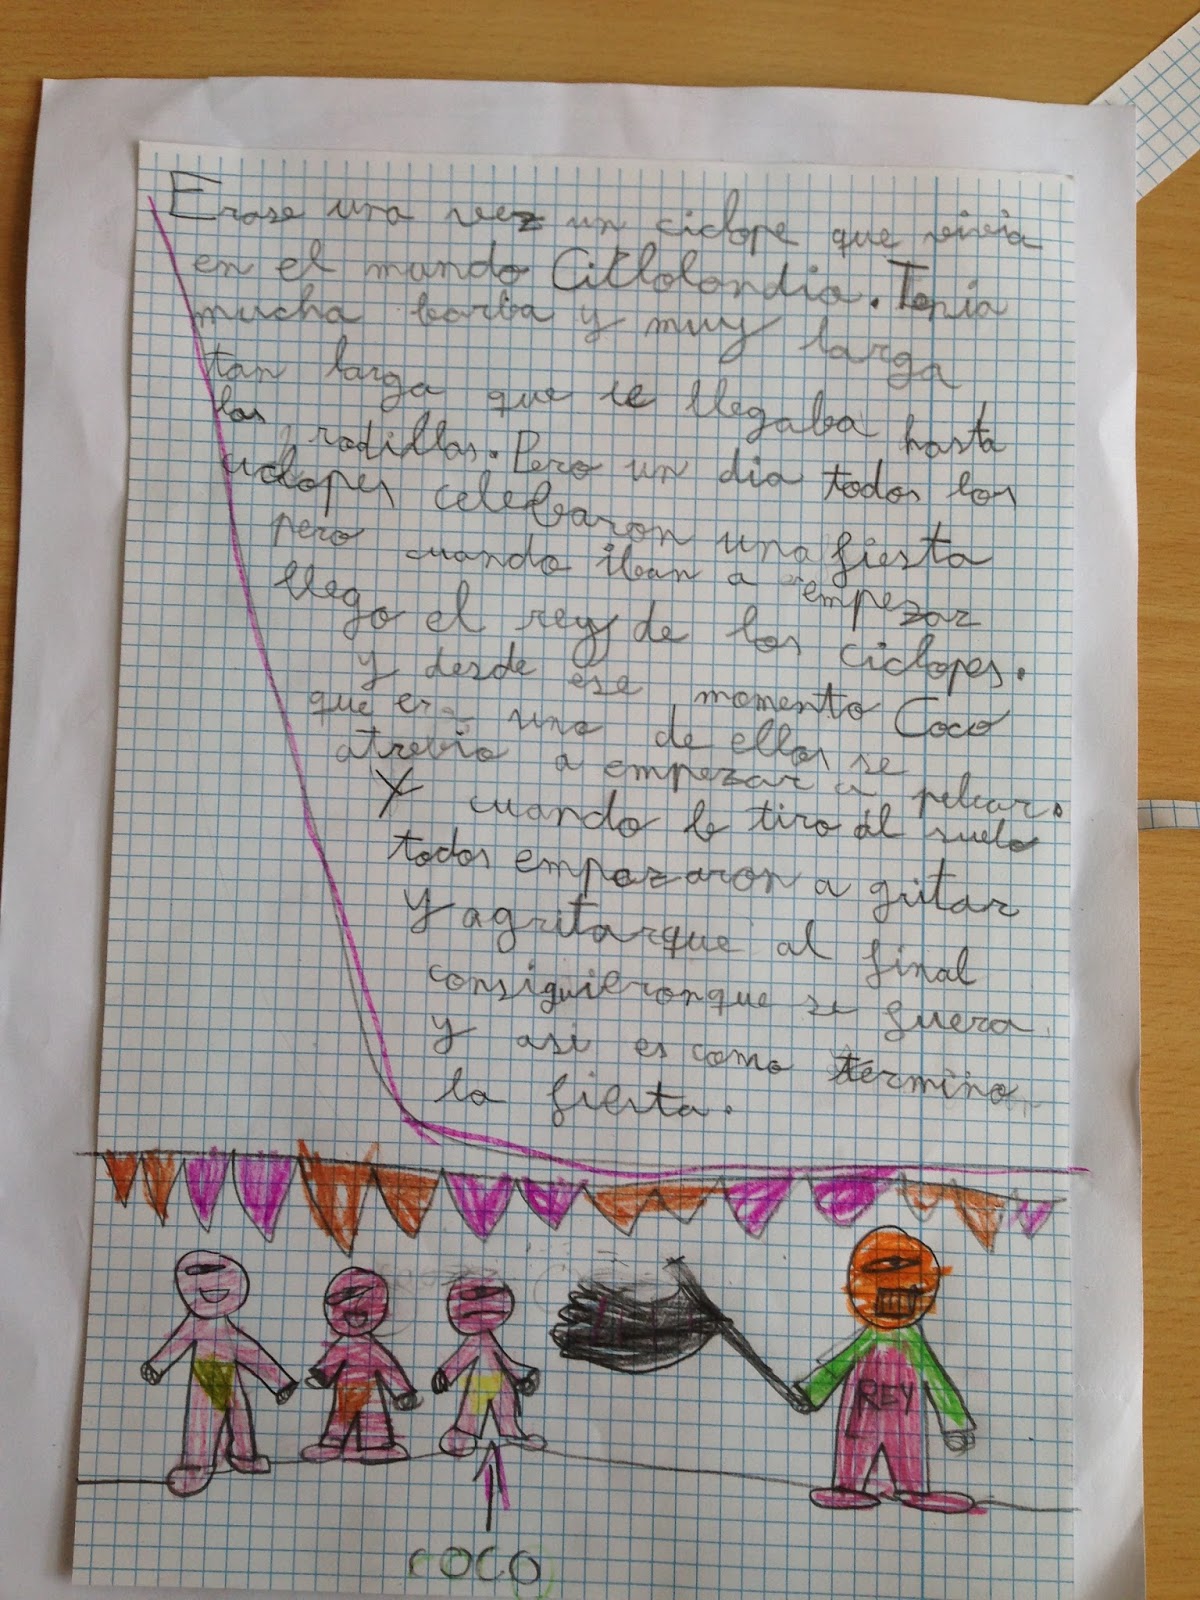 Erase una vez un ciclope que vivia
en el mundo Ciclolandia. Tenia
mucha barba y muy larga
tan larga que le llegaba hasta
las rodillas. Pero un dia todos los
ciclopes celebaron una fiesta
pero cuando iban a empezar
llego el rey de los ciclopes.
y desde ese momento Coco
que era uno de ellos se
atrevio a empezar a pelear.
Y cuando lo tiro al suelo
todos empezaron a gritar
y agritarque al final
consiguieronque se fuera
y asi es como termino
la fiesta.
REY
COCO